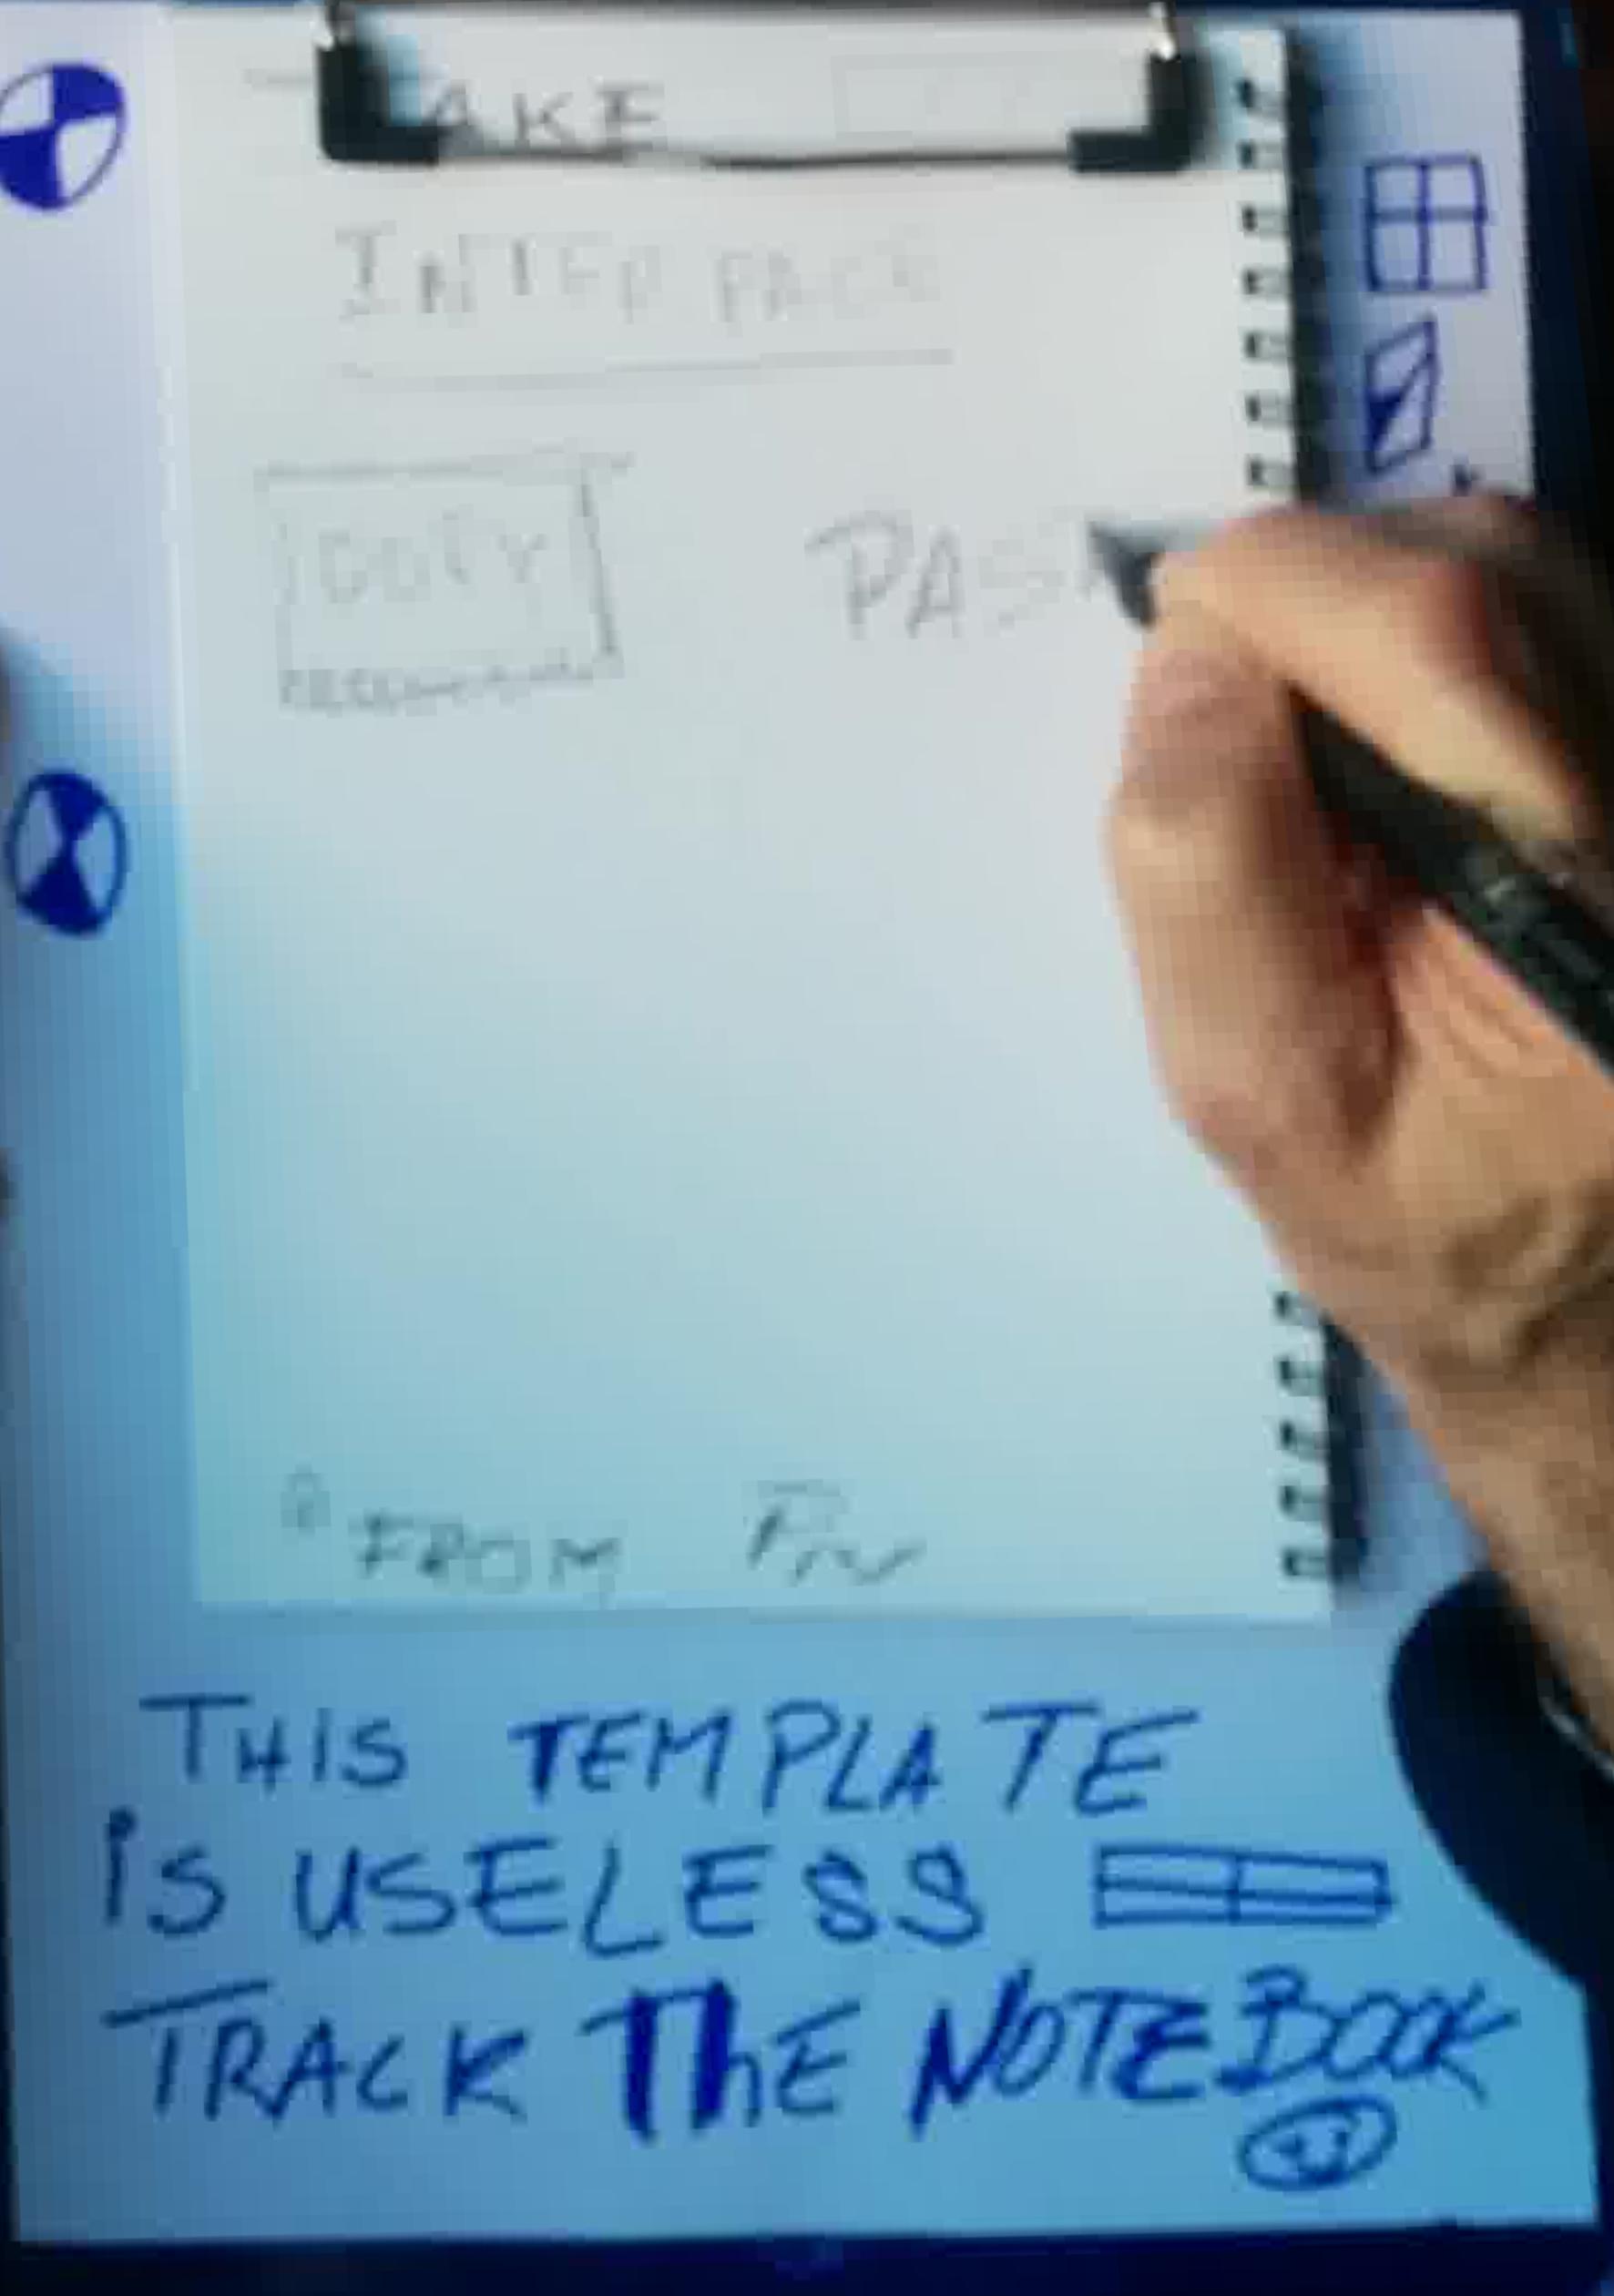 AKE
INTERFACE
COPY PAS
FROM
THIS TEMPLATE
iS USELESS
TRACK ThE NOTEBOOK